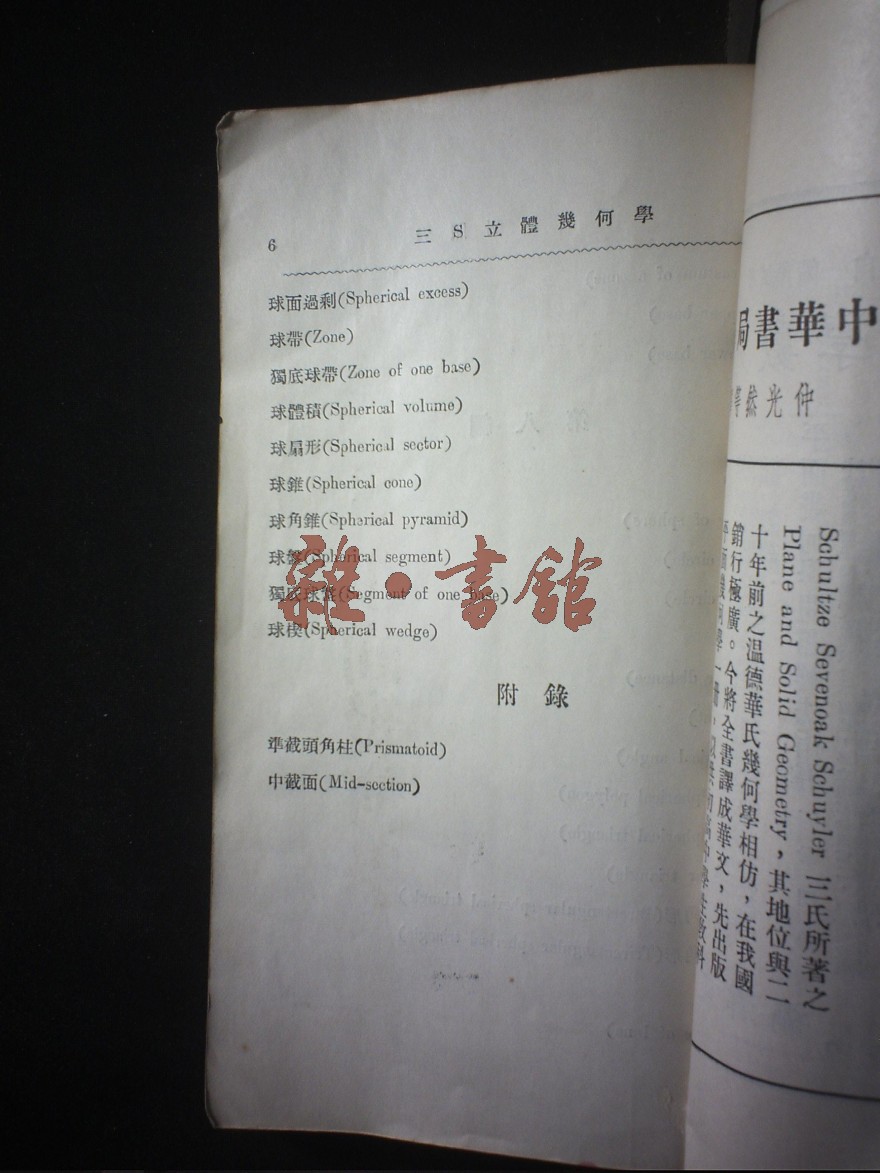 6
三S立體幾何學
球面過剩(Spherical excess)
球帶(Zone)
獨底球帶(Zone of one base)
球體積(Spherical volume)
球扇形(Spherical sector)
球錐(Spherical cone)
球角錐(Spherical pyramid)
球盤(Spherical segment)
獨底球盤(Segment of one base)
球楔(Spherical wedge)
附錄
準截頭角柱(Prismatoid)
中截面(Mid-section)
雜·書館
中華書局
仲光然等
Schultze Sevenoak Schuyler 三氏所著之
Plane and Solid Geometry，其地位與二
十年前之溫德華氏幾何學相仿，在我國
銷行極廣。今將全書譯成華文，先出版
平面幾何學一冊，